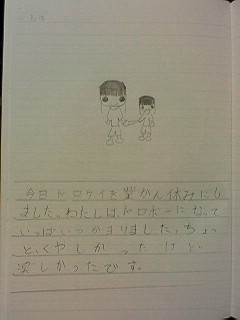 今日ドロケイを業かん休みにし
ました。わたしは、ドロボーになって
いっぱいつかまりました。ちょっ
と、くやしかったけど、
楽しかったです。